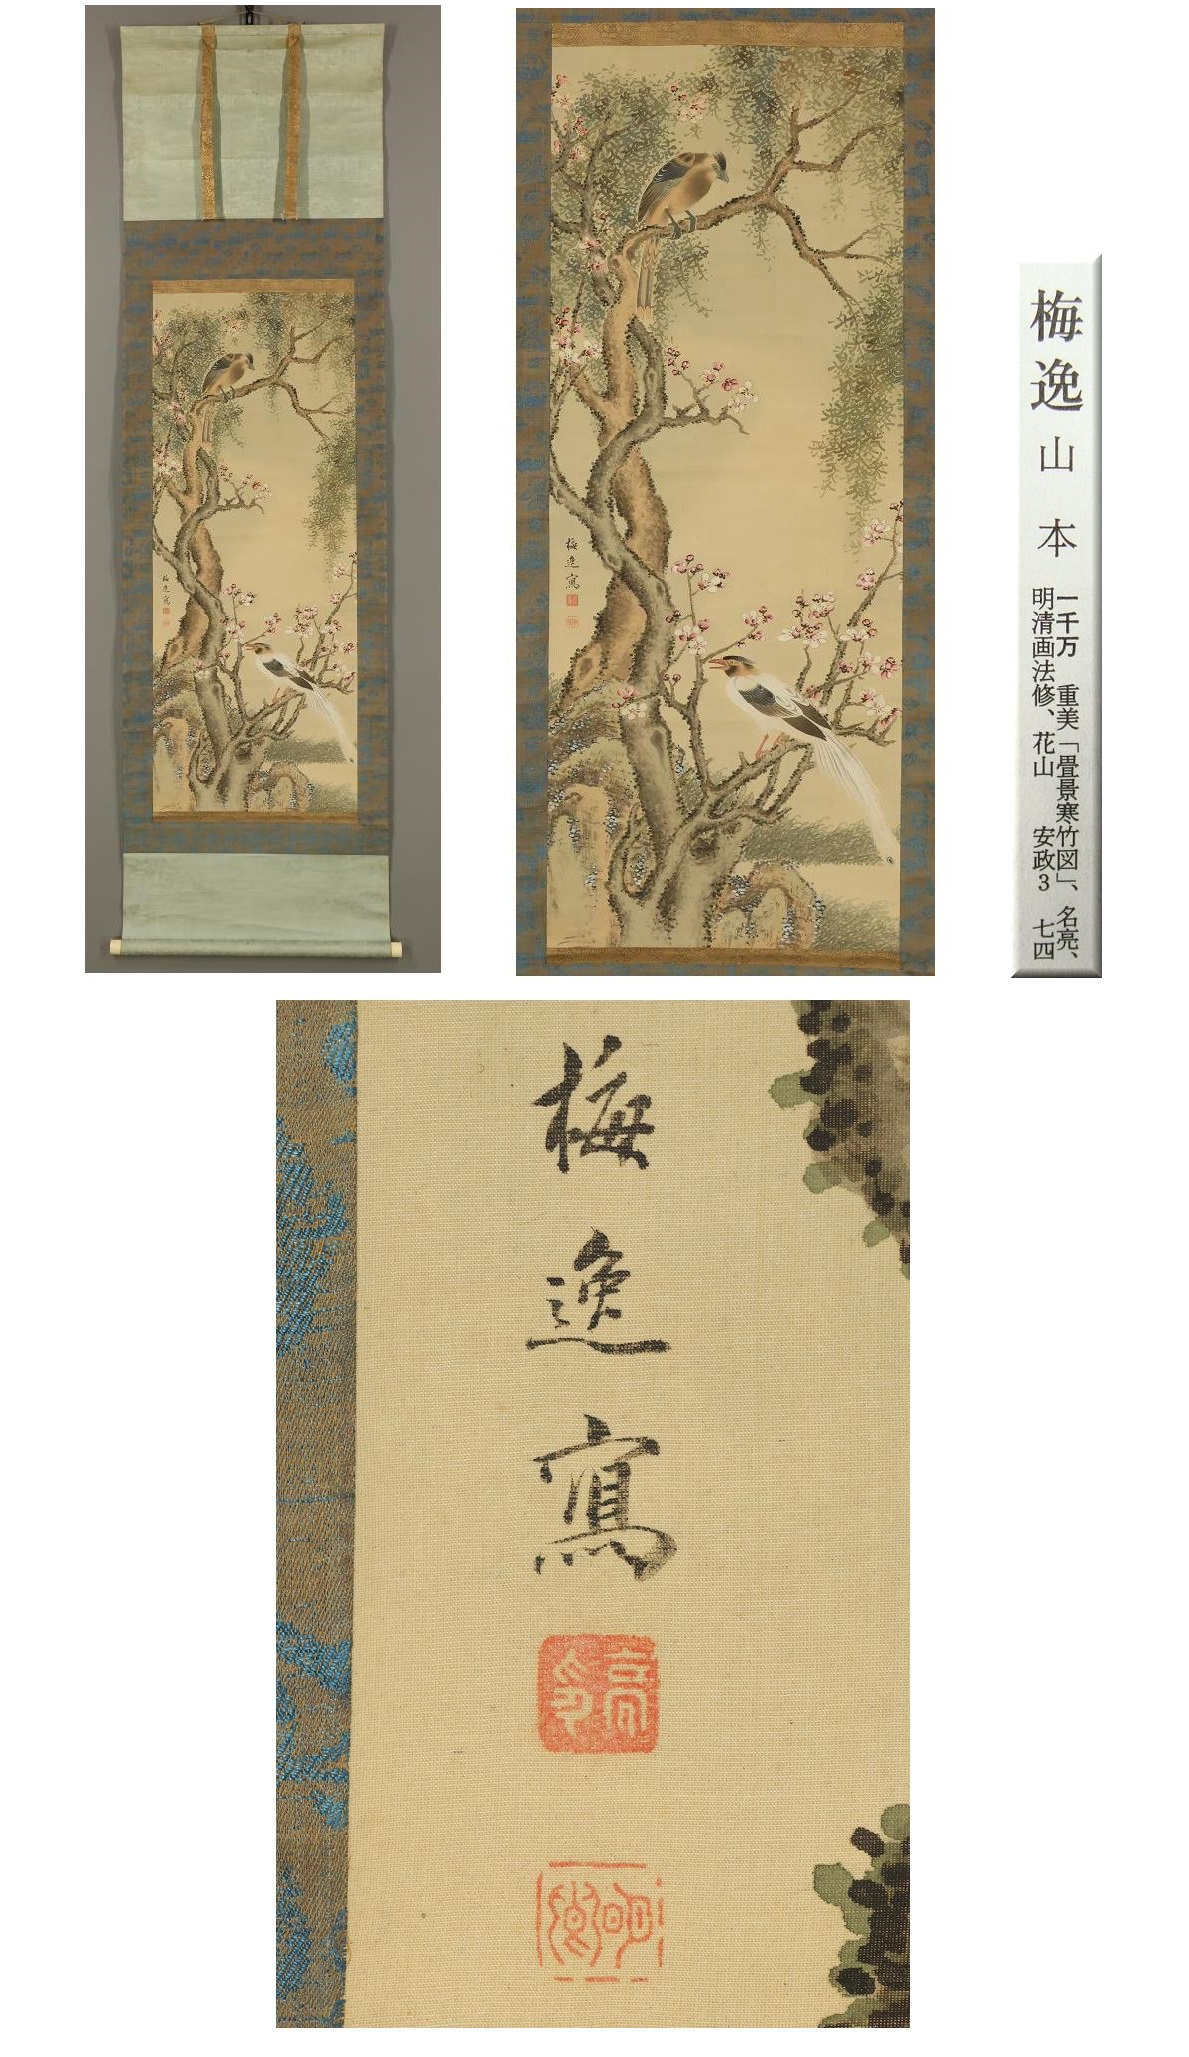 梅逸寫
梅逸 山本
一千万 重美「畳景寒竹図」、名亮、
明清画法修、花山 安政3 七四
梅
逸
寫
亮